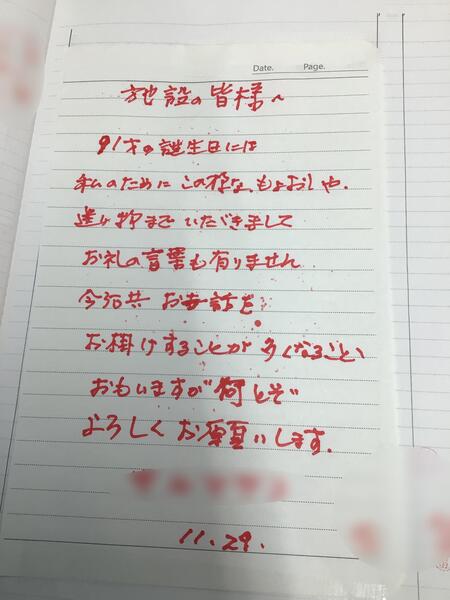 Date. Page.
施設の皆様へ
91才の誕生日には
私のために この様な、もよおしや、
送り物まで いただきまして
お礼の言葉も有りません
今后共 お世話を
お掛けすることが 多くなること、
おもいますが 何とぞ
よろしく お願いします.
11.29.